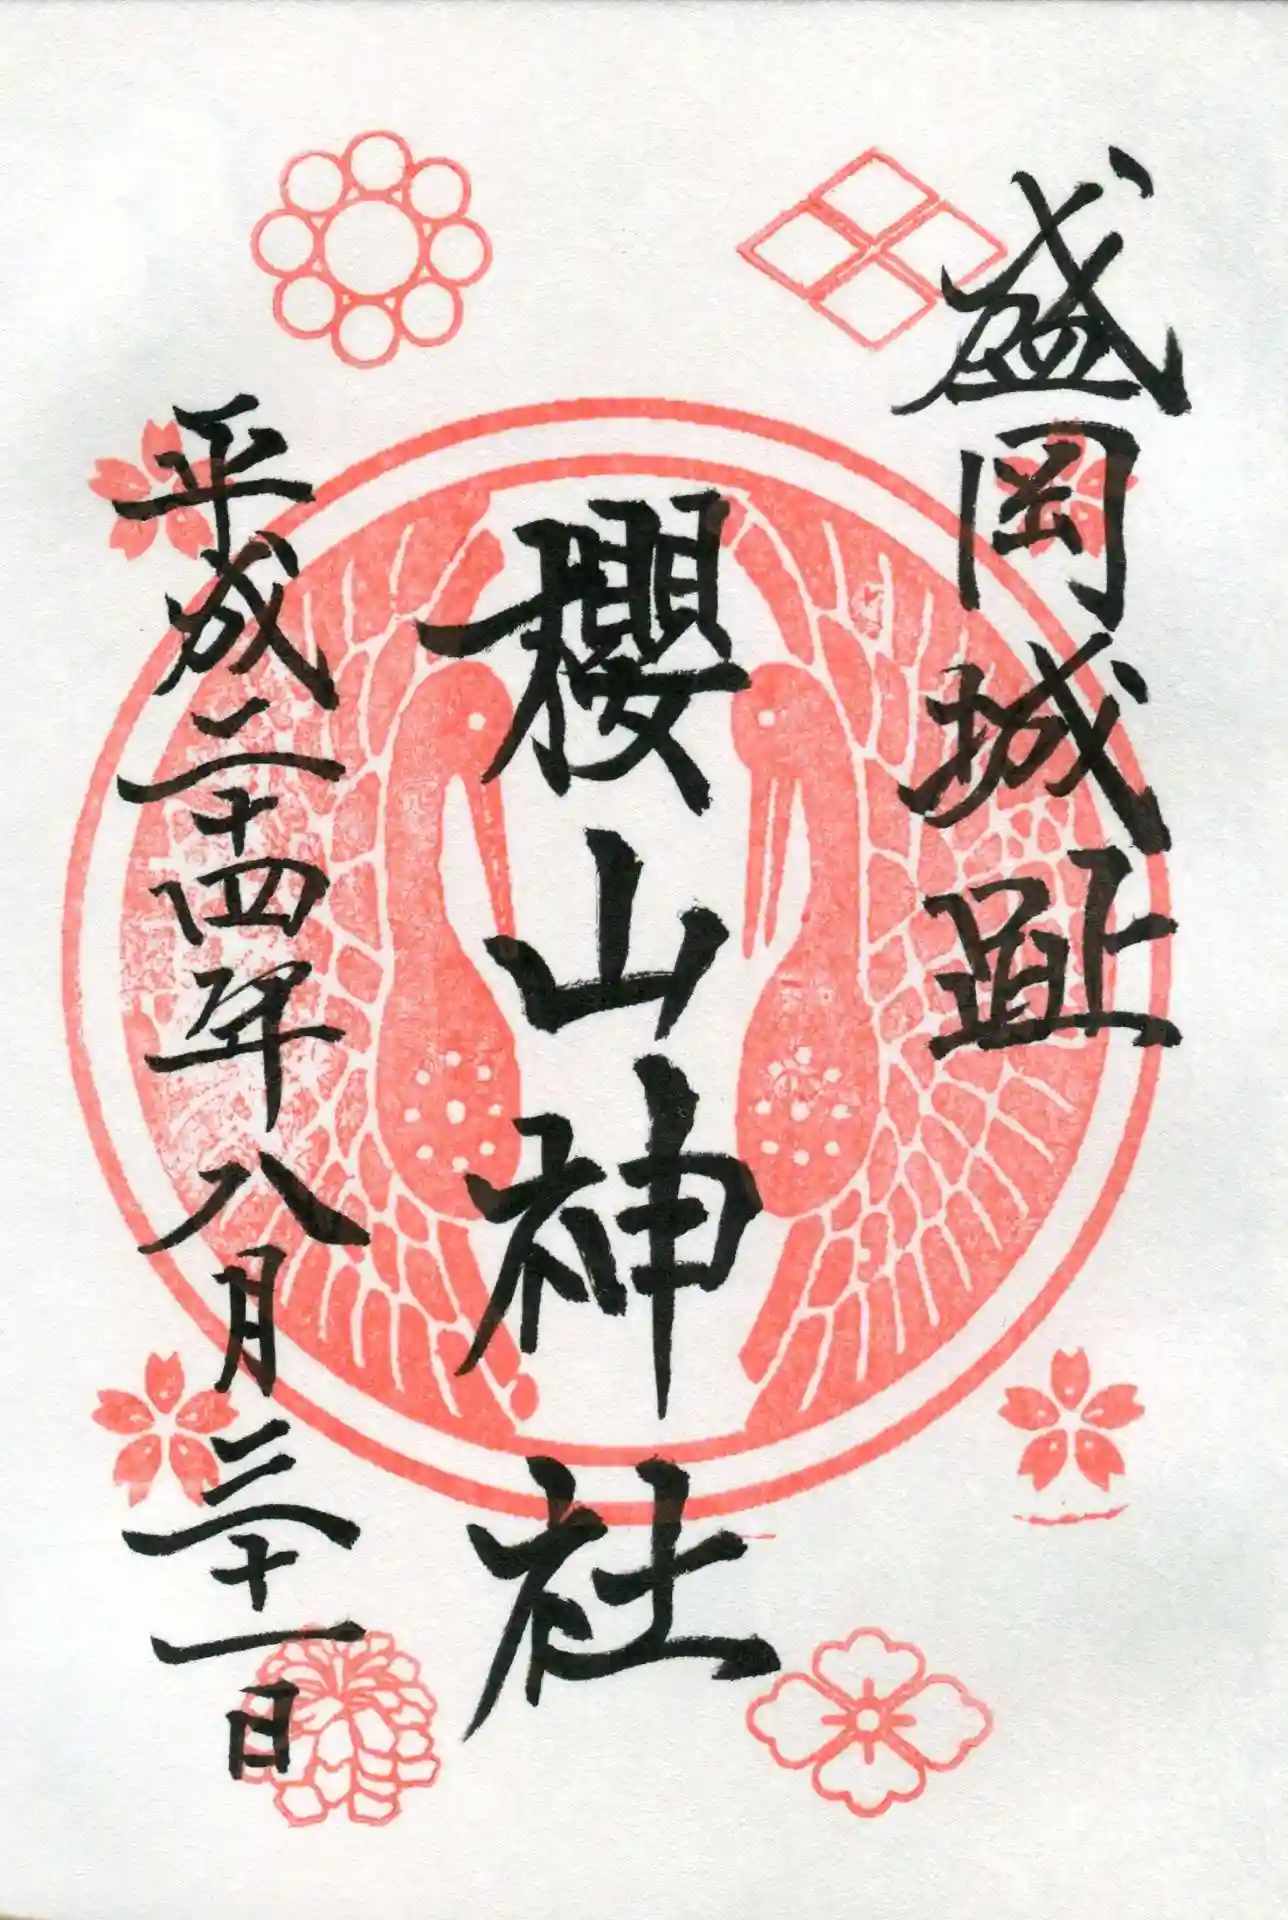 盛岡城趾
櫻山神社
平成二十四年八月三十一日